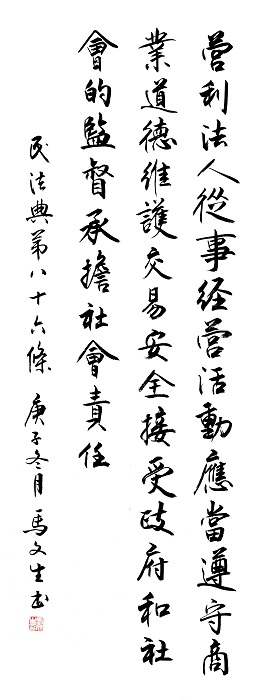 營利法人從事经营活動應當遵守商
業道德維護交易安全接受政府和社
會的監督承擔社會責任
民法典第八十六條 庚子冬月 馬文生书